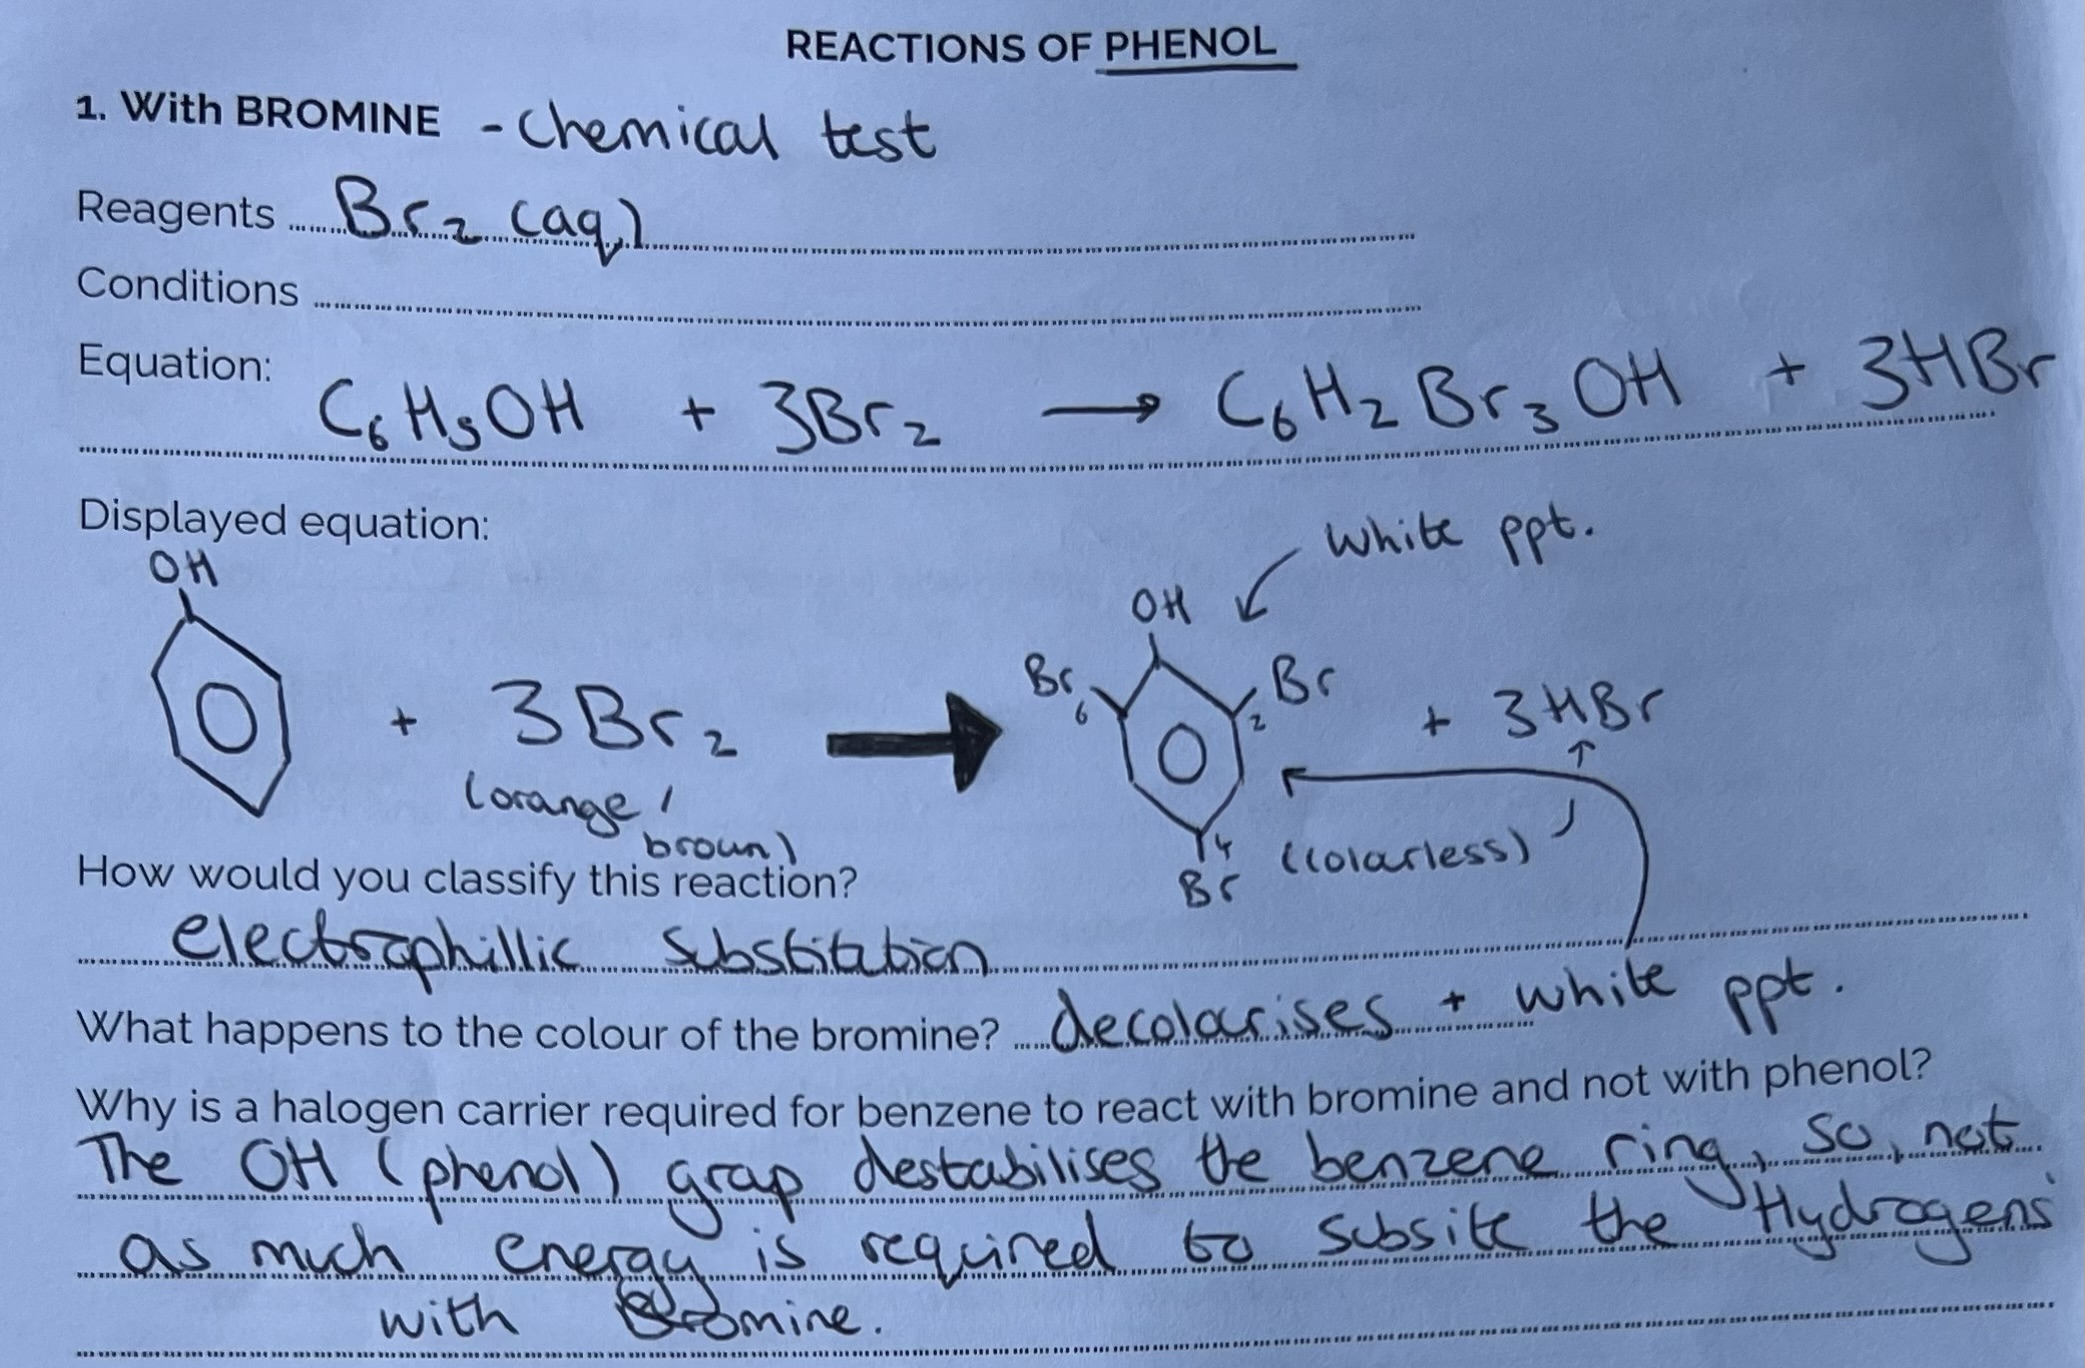 REACTIONS OF PHENOL
1. With BROMINE - Chemical test
Reagents Br₂ (aq)
Conditions
Equation:
C₆H₅OH + 3Br₂ → C₆H₂Br₃OH + 3HBr
Displayed equation:
White ppt.
OH
OH
Br 6 2 Br
+ 3Br₂ + 3HBr
(orange/
brown)
4 (colourless)
Br
How would you classify this reaction?
electrophillic substitution
What happens to the colour of the bromine? decolourises + white ppt.
Why is a halogen carrier required for benzene to react with bromine and not with phenol?
The OH (phenol) group destabilises the benzene ring, so, not
as much energy is required to subsite the Hydrogens
with Bromine.